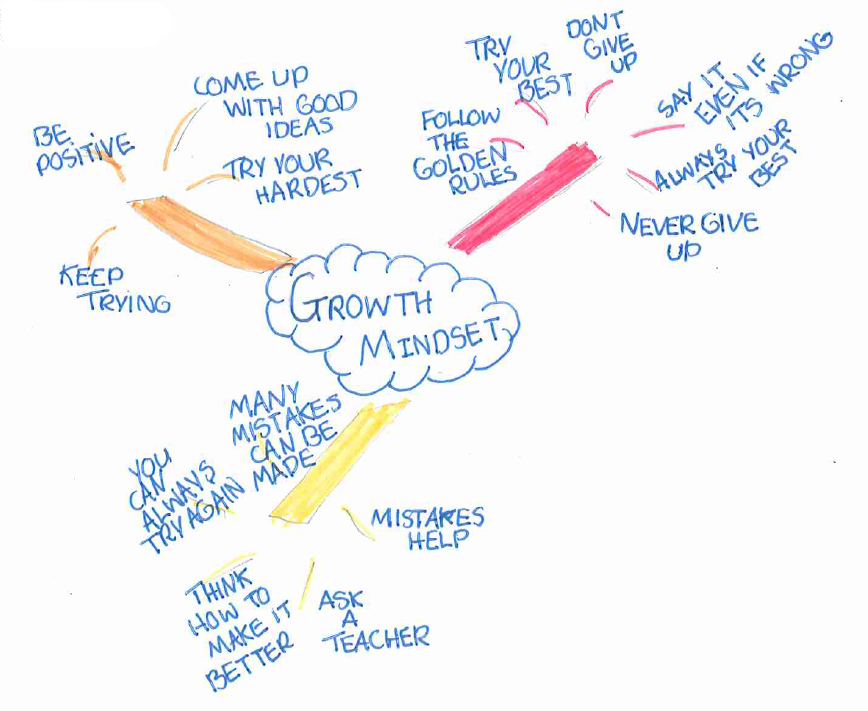 GROWTH
MINDSET
BE
POSITIVE
COME UP
WITH GOOD
IDEAS
TRY YOUR
HARDEST
KEEP
TRYING
FOLLOW
THE
GOLDEN
RULES
TRY
YOUR
BEST
DONT
GIVE
UP
SAY IT
EVEN IF
ITS WRONG
ALWAYS
TRY YOUR
BEST
NEVER GIVE
UP
MANY
MISTAKES
CAN BE
MADE
YOU
CAN
ALWAYS
TRY AGAIN
THINK
HOW TO
MAKE IT
BETTER
ASK
A
TEACHER
MISTAKES
HELP